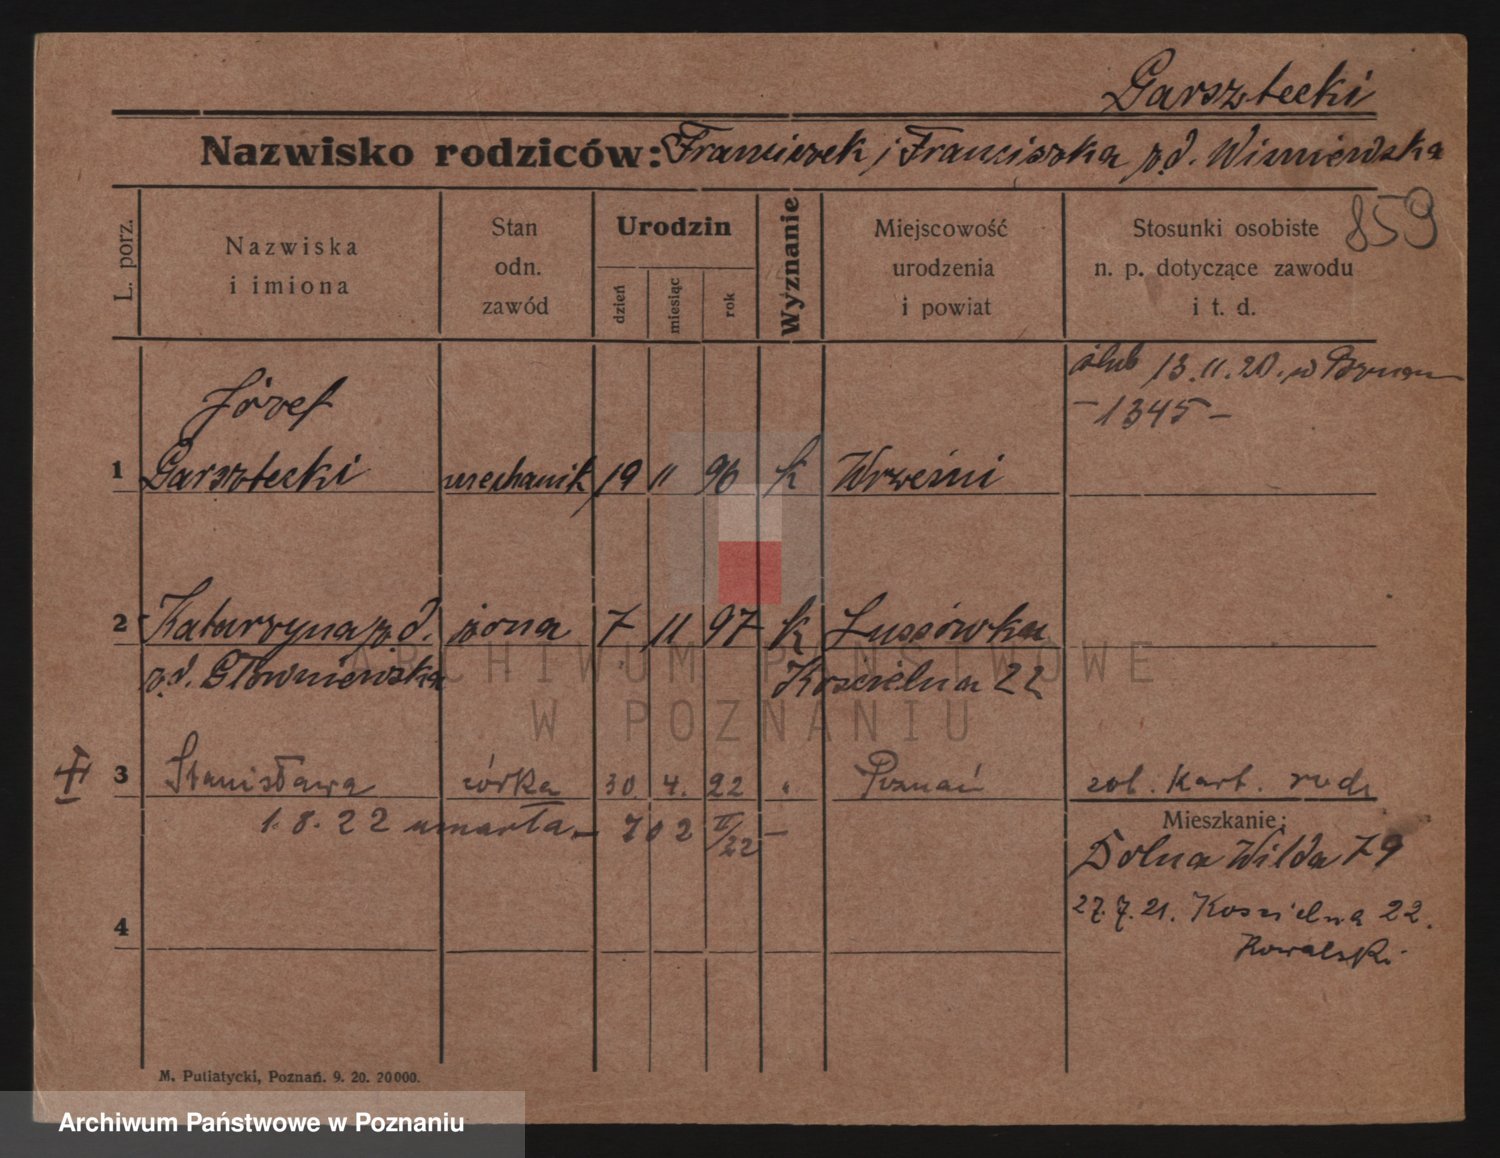 Garsztecki
Nazwisko rodziców: Franciszek i Franciszka z d. Wiśniewska
859
L. porz.
Nazwiska
i imiona
Stan
odn.
zawód
Urodzin
dzień
miesiąc
rok
Wyznanie
Miejscowość
urodzenia
i powiat
Stosunki osobiste
n. p. dotyczące zawodu
i t. d.
ślub 13.11.20. w
- 1345 -
Józef
1 Garsztecki mechanik 19 11 96 k Wrześni
2 Katarzyna z d. żona 7 11 97 k Lussówka
z d. Głowniewska Kościelna 22
3 Stanisława córka 30 4. 22 " Poznań zob. Kart. rodz
1.8.22 umarła - 702 II/22 -
Mieszkanie:
Dolna Wilda 79
27.7.21. Koscielna 22.
Kowalski
4
M. Putiatycki, Poznań. 9. 20. 20000.
ARCHIWUM PAŃSTWOWE
W POZNANIU
Archiwum Państwowe w Poznaniu